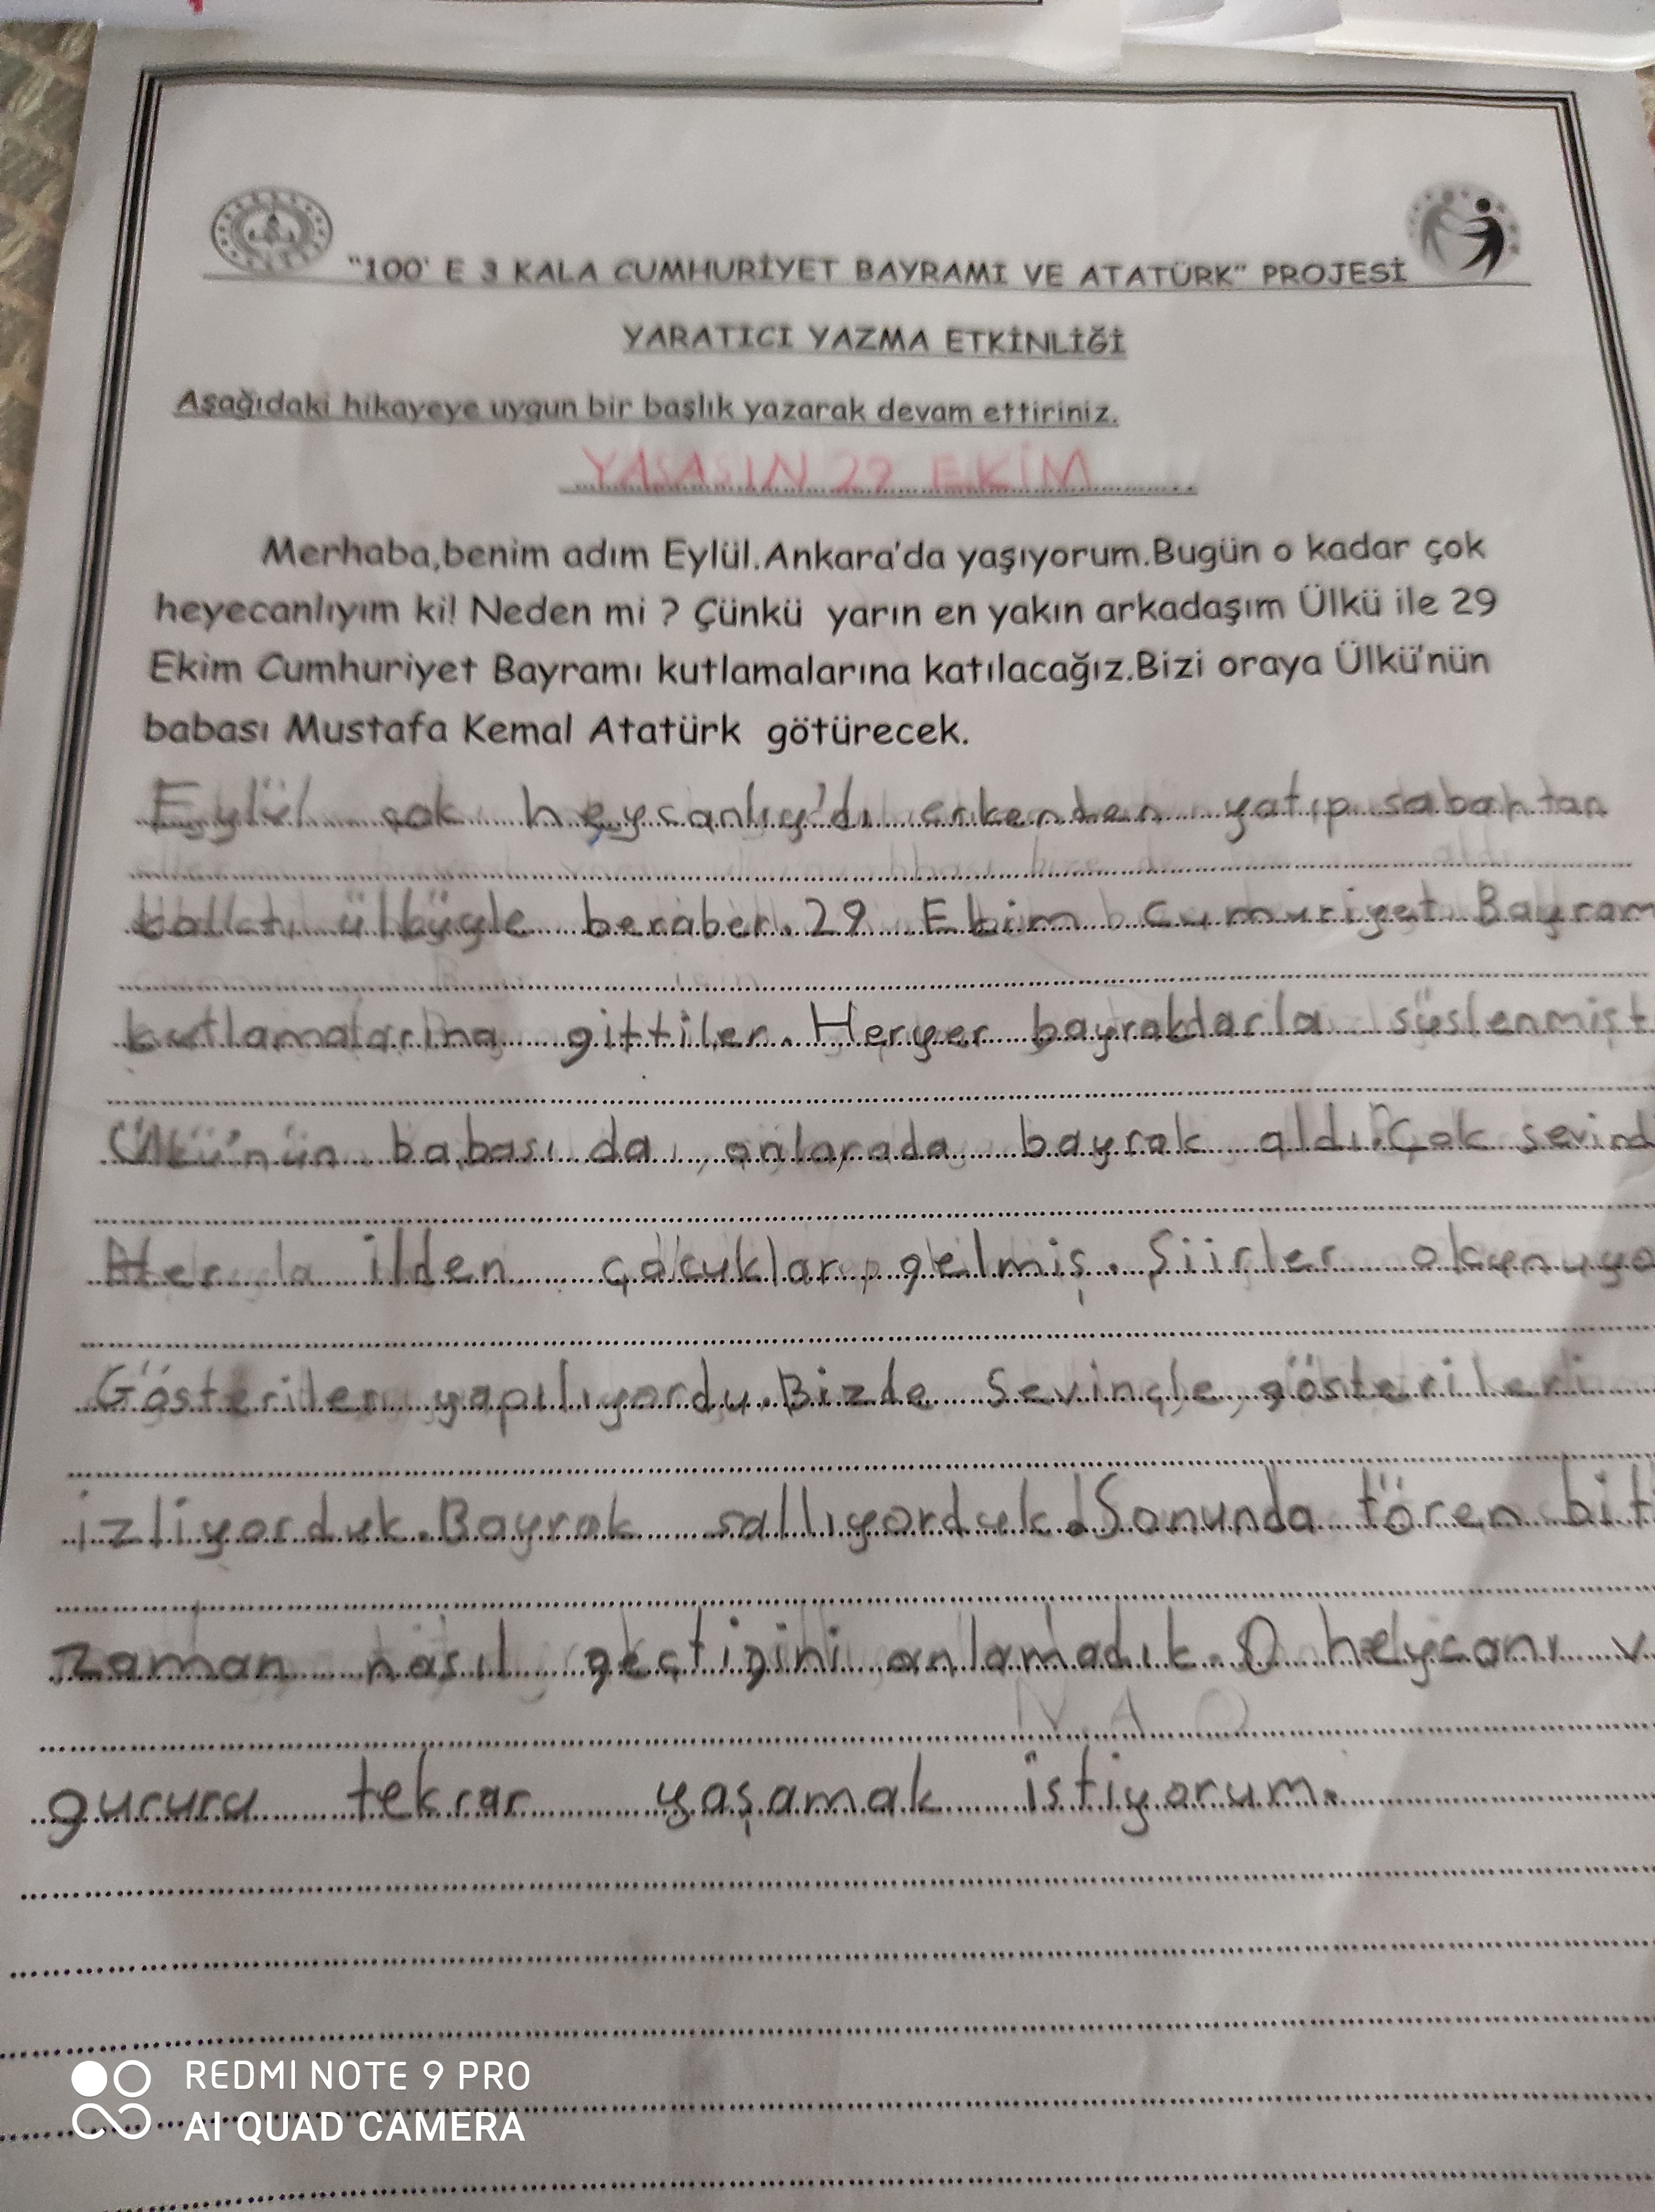 "100' E 3 KALA CUMHURİYET BAYRAMI VE ATATÜRK" PROJESİ
YARATICI YAZMA ETKİNLİĞİ
Aşağıdaki hikayeye uygun bir başlık yazarak devam ettiriniz.
YAŞASIN 29 EKİM
Merhaba,benim adım Eylül.Ankara'da yaşıyorum.Bugün o kadar çok
heyecanlıyım ki! Neden mi ? Çünkü yarın en yakın arkadaşım Ülkü ile 29
Ekim Cumhuriyet Bayramı kutlamalarına katılacağız.Bizi oraya Ülkü'nün
babası Mustafa Kemal Atatürk götürecek.
Eylül çok heycanlıy'dı erkenden yatıp sabahtan
kalktı ülküyle beraber. 29 Ekim Cumuriyet Bayram
kutlamalarına gittiler. Heryer bayraklarla süslenmişt
Ülkü'nün babası da onlarada bayrak aldı. Çok sevind
Her ilden çocuklar gelmiş. Şiirler okunuyo
Gösteriler yapılıyordu. Bizde Sevinçle gösterileri
izliyorduk. Bayrak sallıyorduk. Sonunda tören bit
zaman nasıl geçtigini anlamadık. O heycanı v
gururu tekrar yaşamak istiyorum.
REDMI NOTE 9 PRO
AI QUAD CAMERA